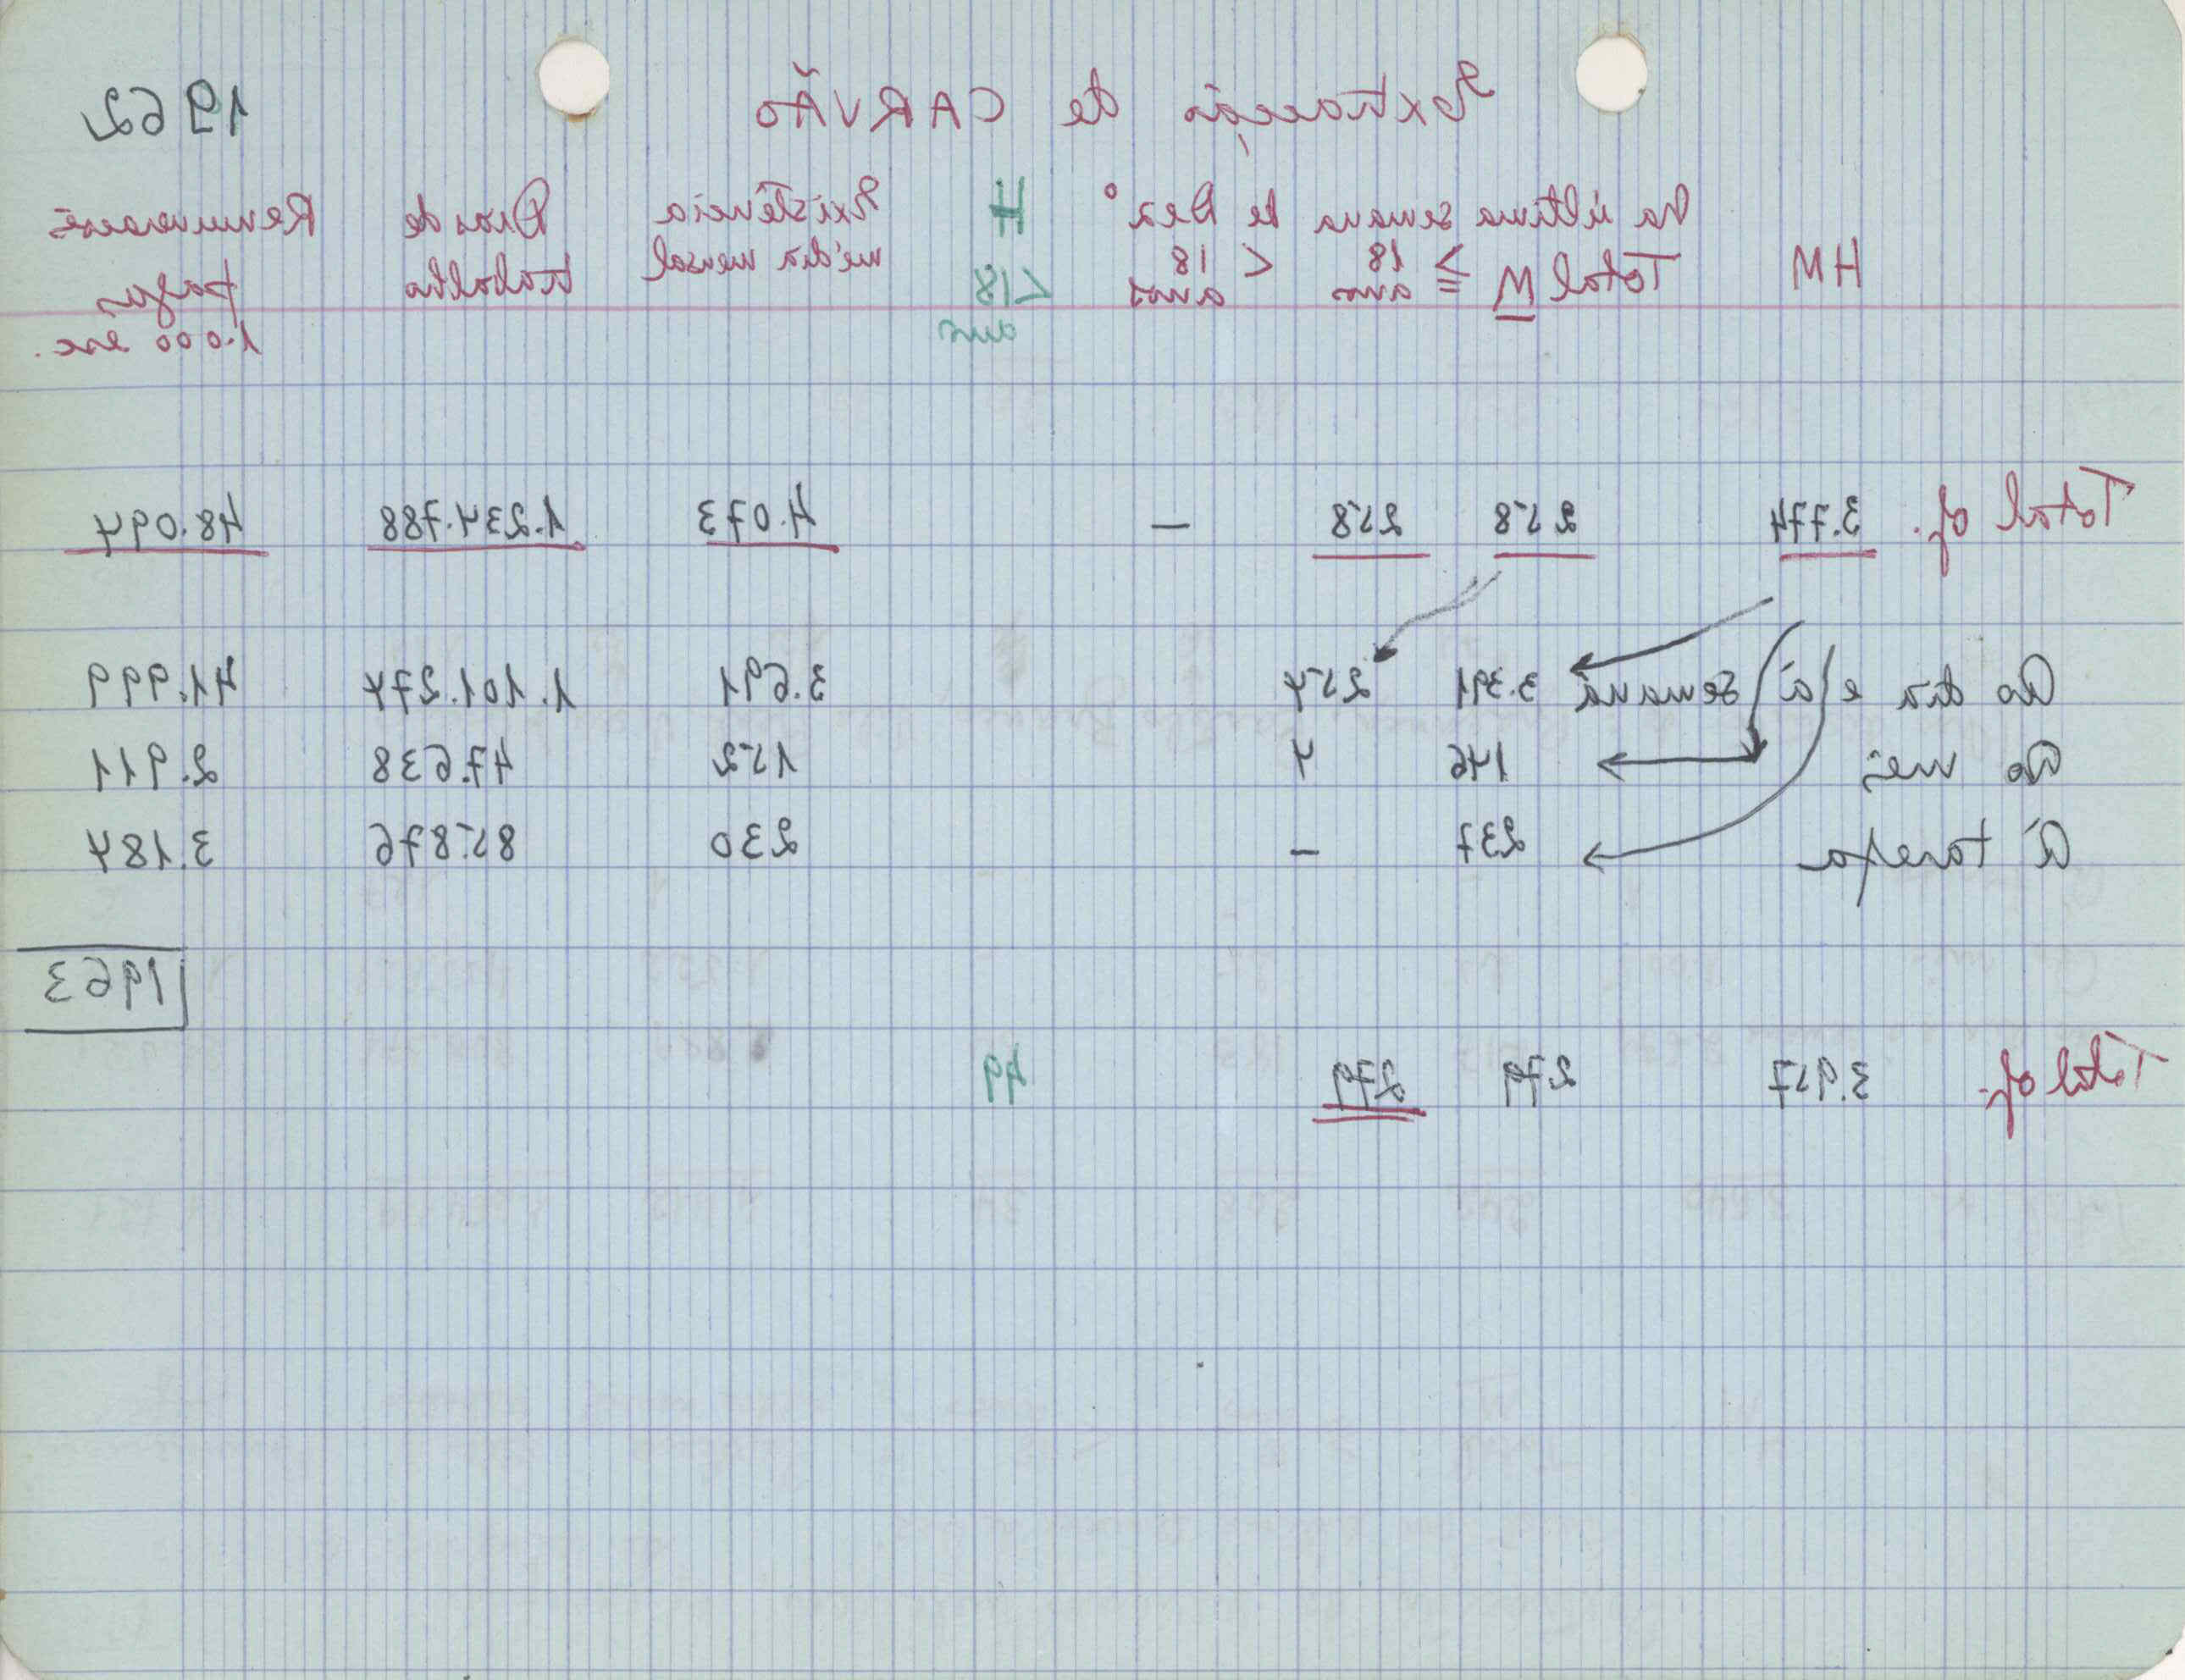 Extracção de CARVÃO 1962
Na última semana de Dez.º H Existência Dias de Remunerações
HM Total M ≥ 18 anos < 18 anos < 18 anos média mensal trabalho pagas
1.000 esc.
Total of. 3.774 258 258 — 4.073 1.234.788 48.094
Ao dia e à semana 3.391 254 3.691 1.101.274 41.999
Ao mês 146 4 152 47.638 2.911
À tarefa 237 — 230 85.876 3.184
1963
Total of. 3.957 279 279 49